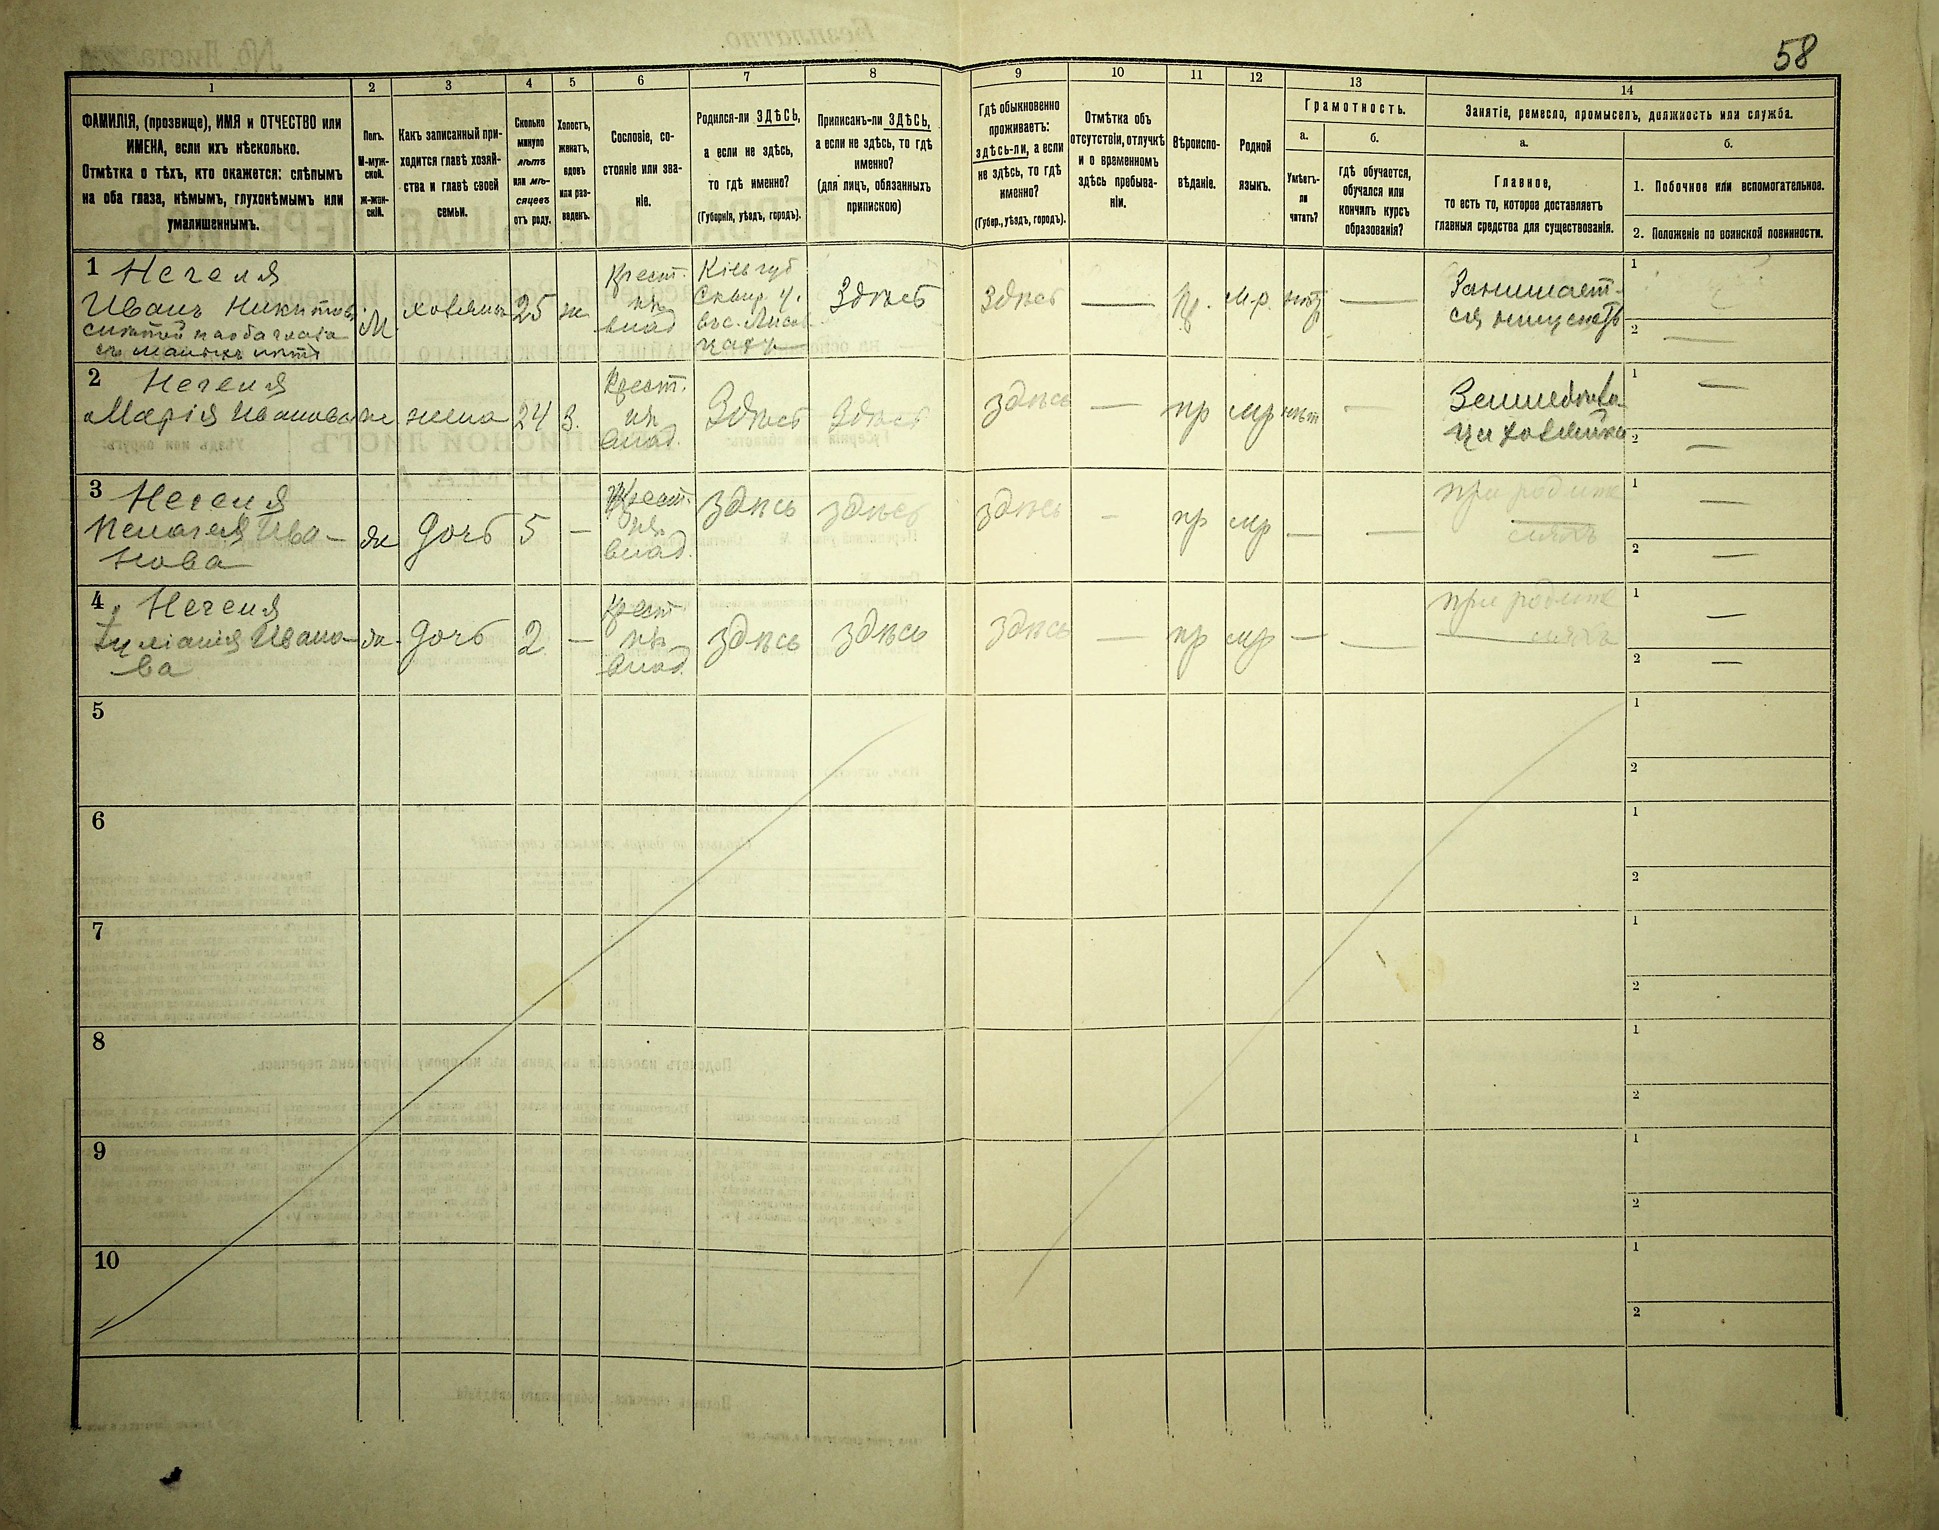 58
1
2
3
4
5
6
7
8
9
10
11
12
13
14
ФАМИЛІЯ, (прозвище), ИМЯ и ОТЧЕСТВО или
ИМЕНА, если ихъ нѣсколько.
Отмѣтка о тѣхъ, кто окажется: слѣпымъ
на оба глаза, нѣмымъ, глухонѣмымъ или
умалишеннымъ.
Полъ.
М-муж-
ской.
Ж-жен-
скій.
Какъ записанный при-
ходится главѣ хозяй-
ства и главѣ своей
семьи.
Сколько
минуло
лѣтъ
или мѣ-
сяцевъ
отъ роду.
Холостъ,
женатъ,
вдовъ
или раз-
веденъ.
Сословіе, со-
стояніе или зва-
ніе.
Родился-ли ЗДѢСЬ,
а если не здѣсь,
то гдѣ именно?
(Губернія, уѣздъ, городъ).
Приписанъ-ли ЗДѢСЬ,
а если не здѣсь, то гдѣ
именно?
(для лицъ, обязанныхъ
припискою)
Гдѣ обыкновенно
проживаетъ:
здѣсь-ли, а если
не здѣсь, то гдѣ
именно?
(Губер., уѣздъ, городъ).
Отмѣтка объ
отсутствіи, отлучкѣ
и о временномъ
здѣсь пребыва-
ніи.
Вѣроиспо-
вѣданіе.
Родной
языкъ.
Грамотность.
а.
Умѣетъ-
ли
читать?
б.
гдѣ обучается,
обучался или
кончилъ курсъ
образованія?
Занятіе, ремесло, промыселъ, должность или служба.
а.
Главное,
то есть то, которое доставляетъ
главныя средства для существованія.
б.
1. Побочное или вспомогательное.
2. Положеніе по воинской повинности.
1 Нечепя
Иванъ Никитовъ
слѣпой на оба глаза
съ малыхъ лѣтъ
М
хозяинъ
25
ж
Крест.
изъ
влад
Кіев губ
Сквир. у.
въ с.
Здѣсь
Здѣсь
—
пр.
м.р.
нѣтъ
—
Занимает-
ся нищенств
1
2 —
2 Нечепя
Марія Иванова
ж
жена
24
З.
Крест.
изъ
влад.
Здѣсь
Здѣсь
здѣсь
—
пр
мр
нѣт
—
Земледѣли-
ца хозяйка
1 —
2 —
3 Нечепя
Пелагея Ива-
нова
ж
дочь
5
—
Крест.
изъ
влад.
здѣсь
здѣсь
здѣсь
—
пр
мр
—
—
при родите
ляхъ
1 —
2 —
4 Нечепя
Иуліанія Ивано-
ва
ж.
дочь
2
—
Крест.
изъ
влад.
здѣсь
здѣсь
здѣсь
—
пр
мр
—
—
при родите
ляхъ
1 —
2 —
5
1
2
6
1
2
7
1
2
8
1
2
9
1
2
10
1
2